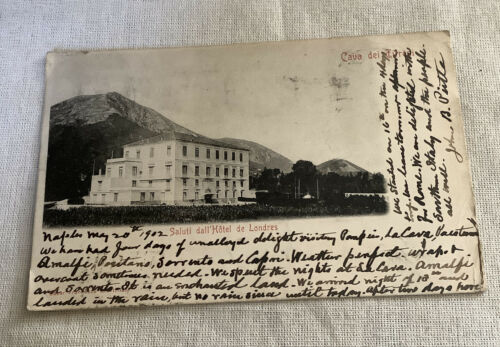 Cava dei Tirreni
Saluti dall'Hôtel de Londres
Naples May 20th 1902
We have had four days of unalloyed delight visiting Pompeii, La Cava Paestum
Amalfi, Positano, Sorrento and Capri. Weather perfect. wraps &
overcoats sometimes needed. We spent the nights at La Cava, Amalfi
and Sorrento. It is an enchanted land. We arrived night of 15th and
landed in the rain, but no rain since until today. After two days here
We started on 16th on the
and leave tomorrow
for Rome. We are delighted with
Southern Italy and the people.
all well.
John B.